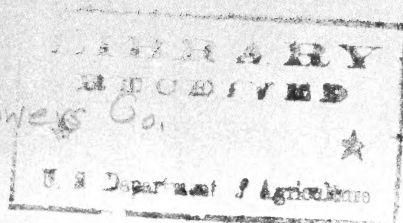 LIBRARY
RECEIVED
Co.
U. S. Department of Agriculture